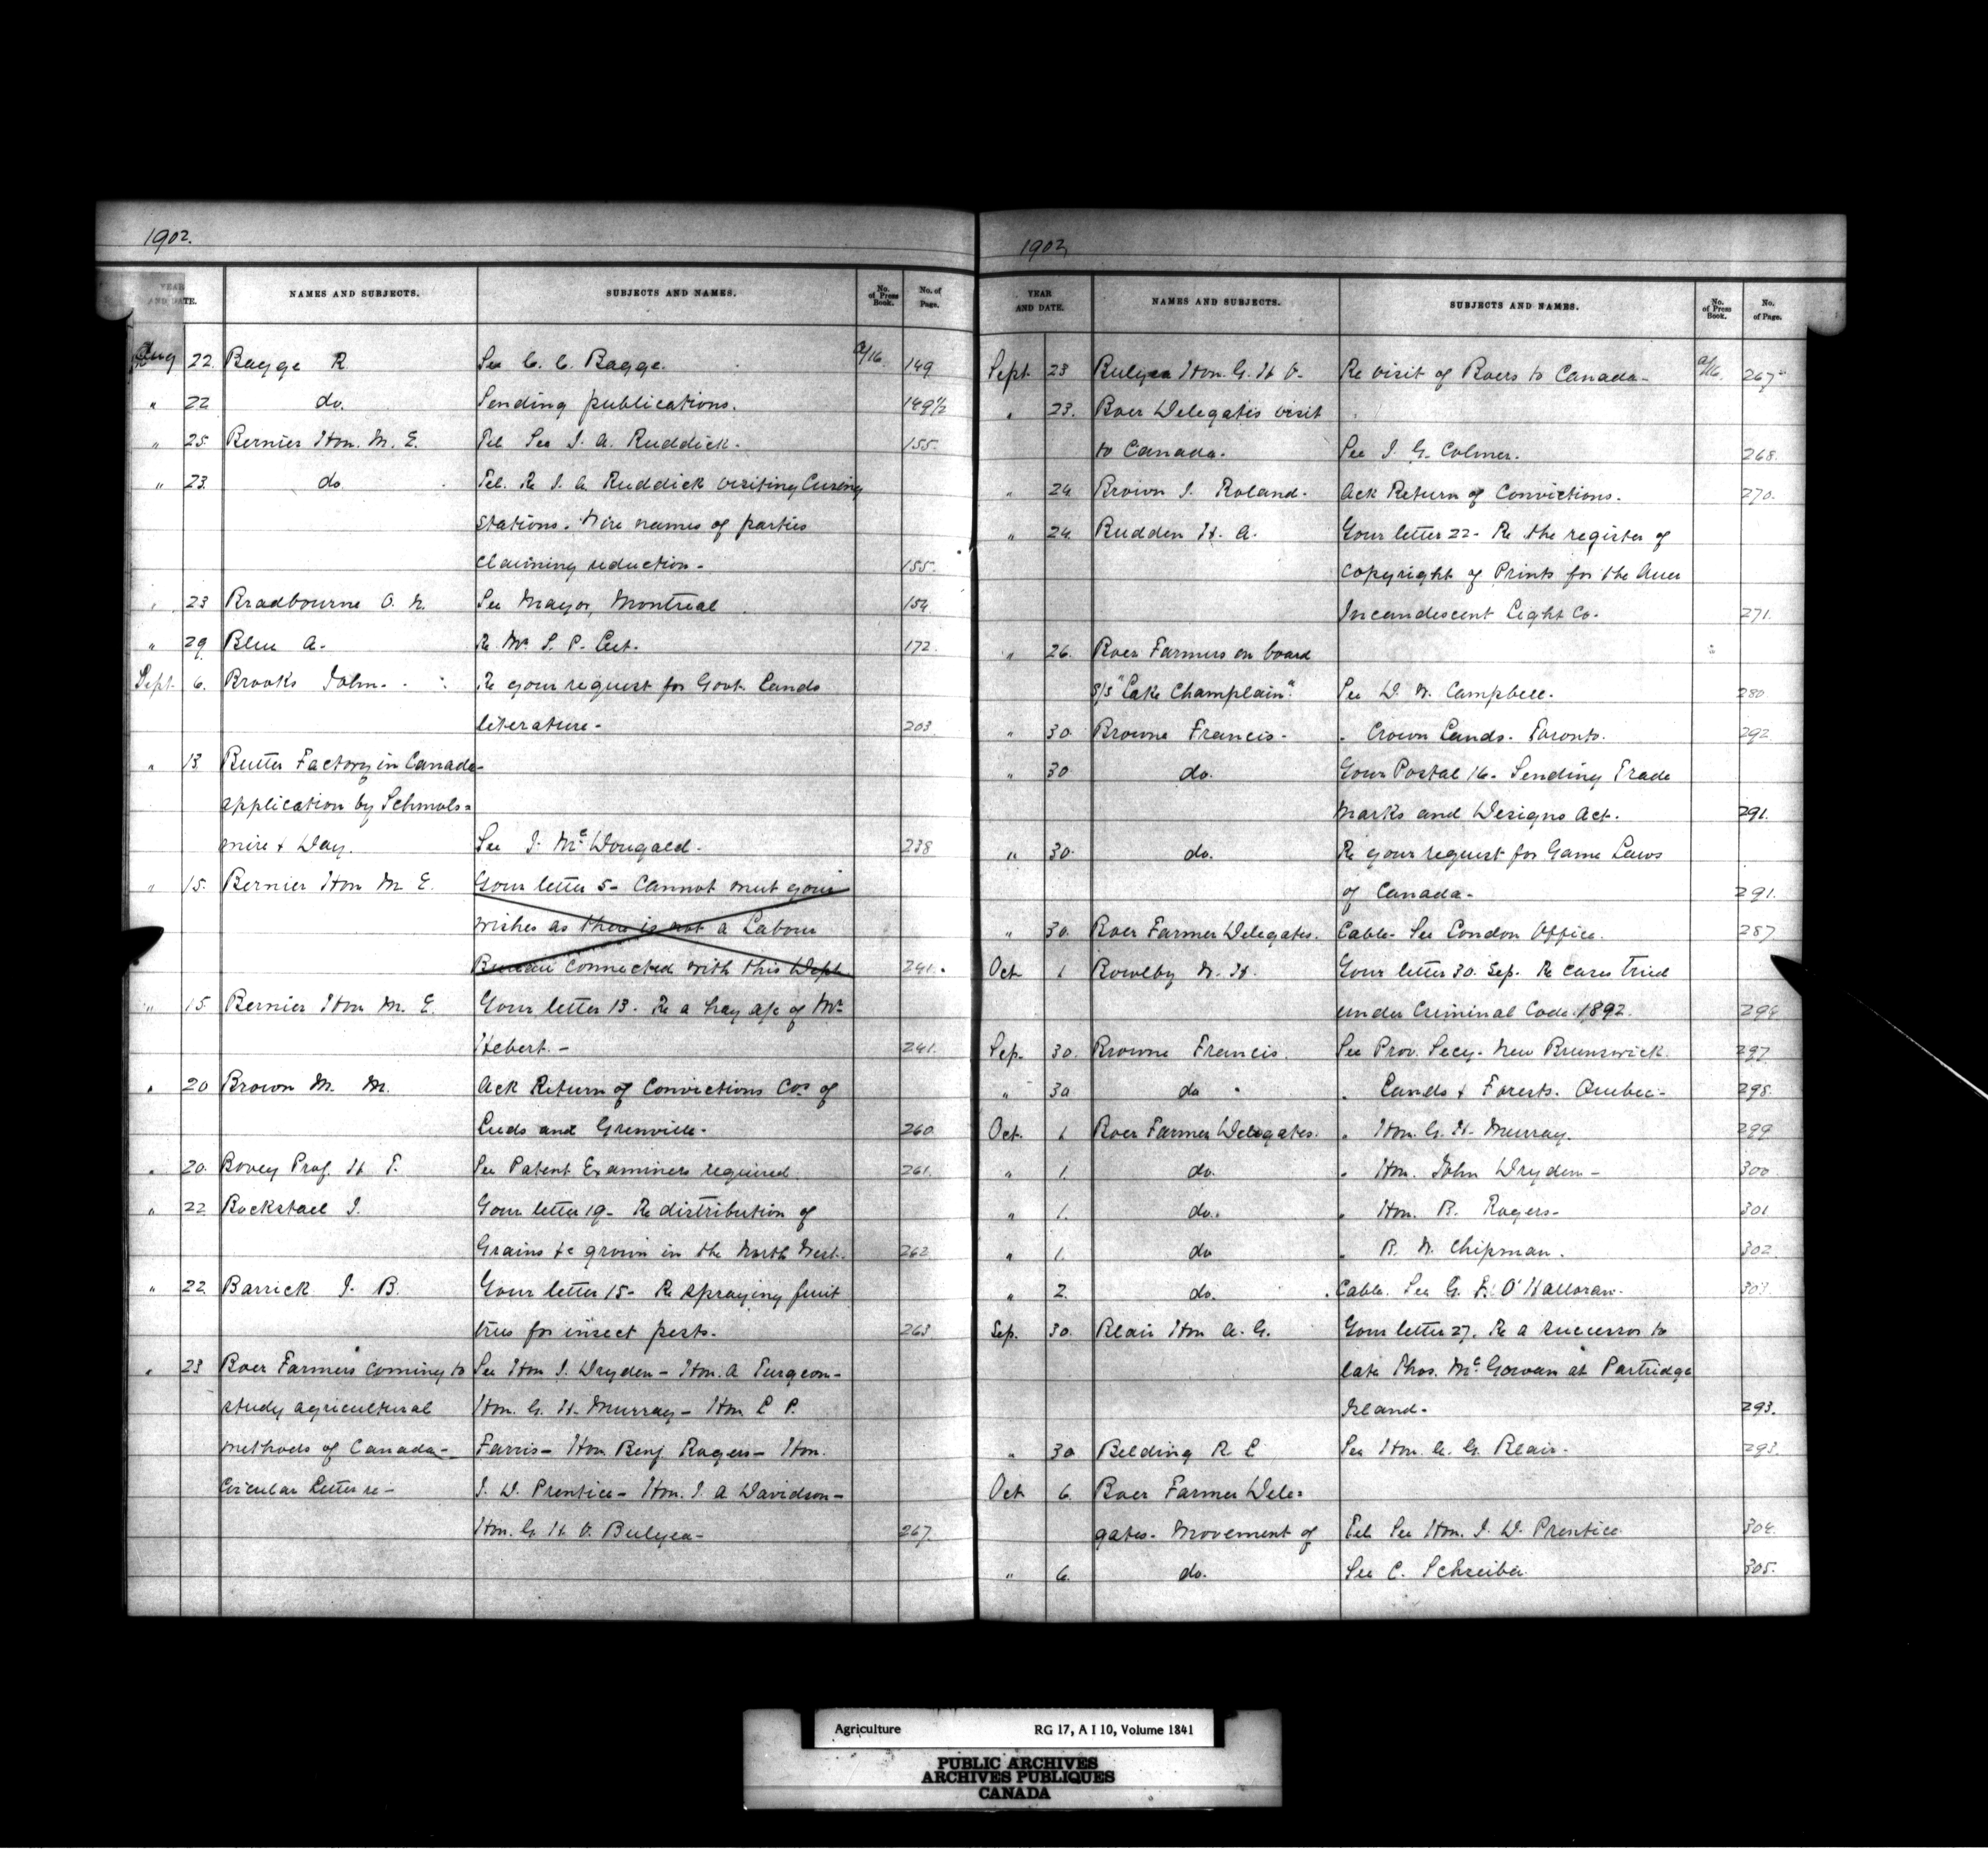 1902.
YEAR AND DATE. NAMES AND SUBJECTS. SUBJECTS AND NAMES. No. of Press Book. No. of Page.
Aug 22. Bagge R. See C. C. Bagge. a/16. 149
" 22 do. Sending publications. 149½
" 25. Bernier Hon. M. E. Tel See J. A. Ruddick. 155.
" 23. do Tel. Re J. A. Ruddick visiting Curing
Stations. Wire names of parties
claiming reduction - 155.
" 23 Bradbourne O. N. See Mayor, Montreal 154.
" 29 Blue A. Re Mr. S. P. 172.
Sept. 6. Brooks John. Re your request for Govt. Lands
literature - 203
" 13. Butter Factory in Canada -
application by Schmols=
mire & Day. See J. McDougald. 238
" 15. Bernier Hon M. E. Your letter 5 - Cannot meet your
wishes as there is not a Labour
Bureau connected with this Dept 241.
" 15 Bernier Hon M. E. Your letter 13. Re a hay a/c of Mr
Hebert. - 241.
" 20 Brown M. M. Ack Return of Convictions Cos. of
Leeds and Grenville. 260
" 20. Bovey Prof. H. T. See Patent Examiners required. 261.
" 22 Bockstael J. Your letter 19 - Re distribution of
Grains &c grown in the North West. 262
" 22. Barrick J. B. Your letter 15 - Re spraying fruit
trees for insect pests. 263
" 23 Boer Farmers coming to See Hon J. Dryden - Hon. A Turgeon -
study agricultural Hon. G. H. Murray - Hon L P.
methods of Canada - Farris - Hon. Benj. Rogers - Hon.
Circular Letter re - J. D. Prentice - Hon. J. A Davidson -
Hon. G. H. V. Bulyea - 267.
1902
YEAR AND DATE. NAMES AND SUBJECTS. SUBJECTS AND NAMES. No. of Press Book. No. of Page.
Sept. 23 Bulyea Hon. G. H V. Re visit of Boers to Canada - a/16. 267
" 23. Boer Delegates visit
to Canada. See J. G. Colmer. 268.
" 24 Brown J. Roland. Ack Return of Convictions. 270.
" 24. Budden H. A. Your letter 22 - Re the register of
Copyright of Prints for the Auer
Incandescent Light Co. 271.
" 26. Boer Farmers on board
S/S "Lake Champlain". See D. W. Campbell. 280
" 30 Browne Francis. " Crown Lands. Toronto. 292
" 30 do. Your Postal 16. Sending Trade
Marks and Designs Act. 291.
" 30. do. Re your request for Game Laws
of Canada - 291.
" 30. Boer Farmer Delegates. Cable - See London Office. 287
Oct. 1 Bowlby W. H. Your letter 30. Sep. Re cases tried
under Criminal Code. 1892. 294
Sep. 30. Browne Francis. See Prov. Secy. New Brunswick. 297.
" 30 do " Lands & Forests. Quebec - 298.
Oct. 1 Boer Farmer Delegates. " Hon. G. H. Murray. 299
" 1. do. " Hon. John Dryden - 300
" 1. do. " Hon. B. Rogers - 301
" 1. do " R. W. Chipman. 302.
" 2. do. Cable. See G. F. O'Halloran. 303.
Sep. 30. Blair Hon A. G. Your letter 27. Re a successor to
late Thos. McGowan at Partridge
Island. 293.
" 30 Belding R. E See Hon. A. G. Blair. 293.
Oct 6. Boer Farmer Dele=
gates - Movement of Tel. See Hon. J. D. Prentice 304.
" 6. do. See C. Schreiber 305.
Agriculture RG 17, A I 10, Volume 1841
PUBLIC ARCHIVES
ARCHIVES PUBLIQUES
CANADA